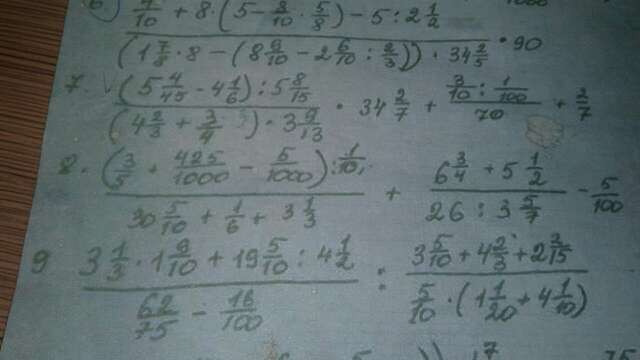 6) 7/10 + 8 · (5 - 8/10 · 5/8) - 5 : 2 1/2
(1 7/8 · 8 - (8 9/10 - 2 6/10 : 2/3)) · 34 2/5 · 90
7. (5 4/45 - 4 1/6) : 5 8/15
(4 2/3 + 3/4) · 3 9/13 · 34 2/7 + 3/10 : 1/100 / 70 + 2/7
8. (3/5 + 425/1000 - 5/1000) : 1/10
30 5/10 + 1/6 + 3 1/3 + 6 3/4 + 5 1/2 / 26 : 3 5/7 - 5/100
9 3 1/3 · 1 9/10 + 19 5/10 : 4 1/2
62/75 - 16/100 : 3 5/10 + 4 2/3 + 2 2/15 / 5/10 · (1 1/20 + 4 1/10)